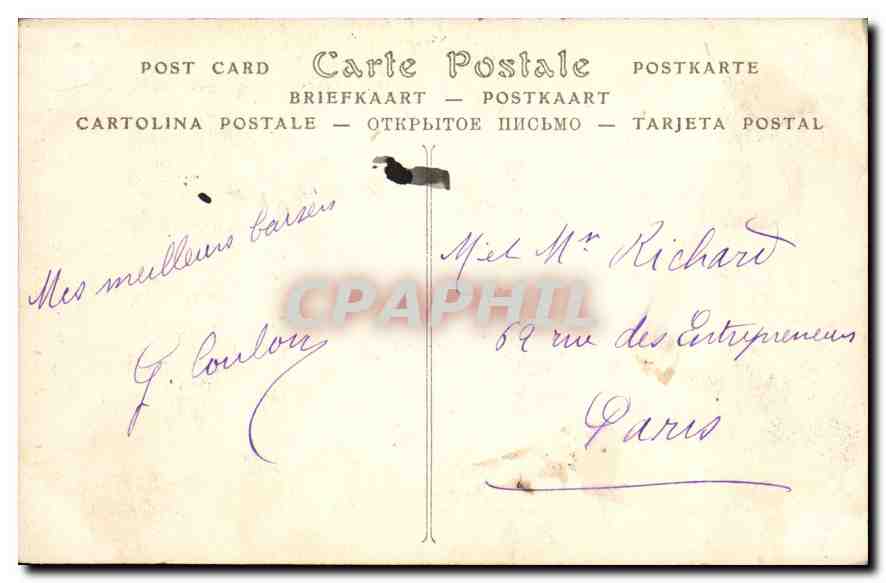 POST CARD Carte Postale POSTKARTE
BRIEFKAART — POSTKAART
CARTOLINA POSTALE — ОТКРЫТОЕ ПИСЬМО — TARJETA POSTAL
Mes meilleurs baisers
G. Coulon
M et Mr Richard
62 rue des Entrepreneurs
Paris
CPAPHIL